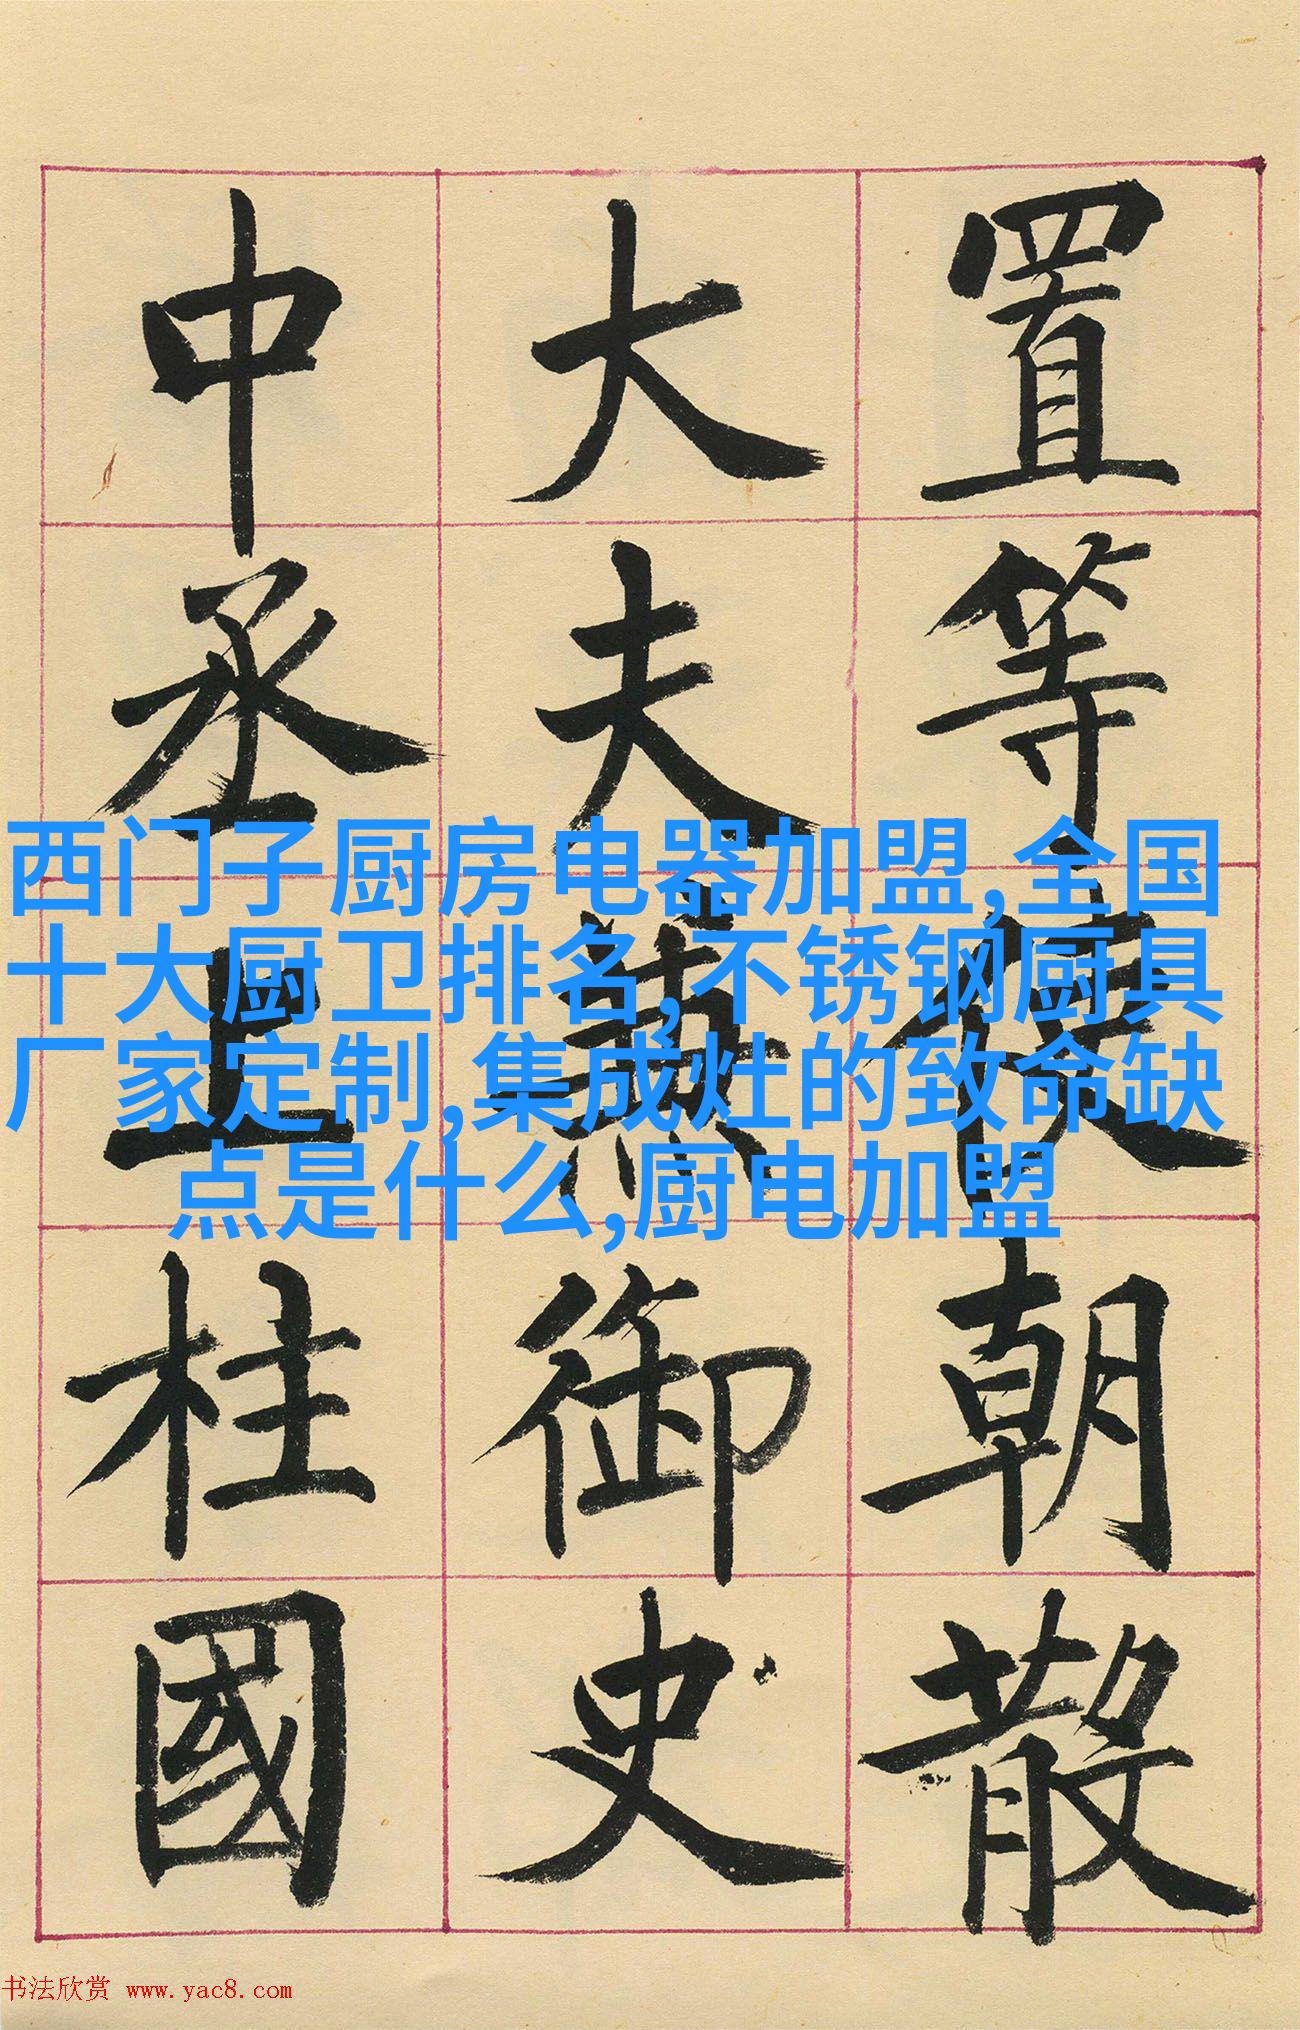 置等使朝散
大夫兼御史
中丞上柱國
西门子厨房电器加盟,全国
十大厨卫排名,不锈钢厨具
厂家定制,集成灶的致命缺
点是什么,厨电加盟
书法欣赏 www.yac8.com